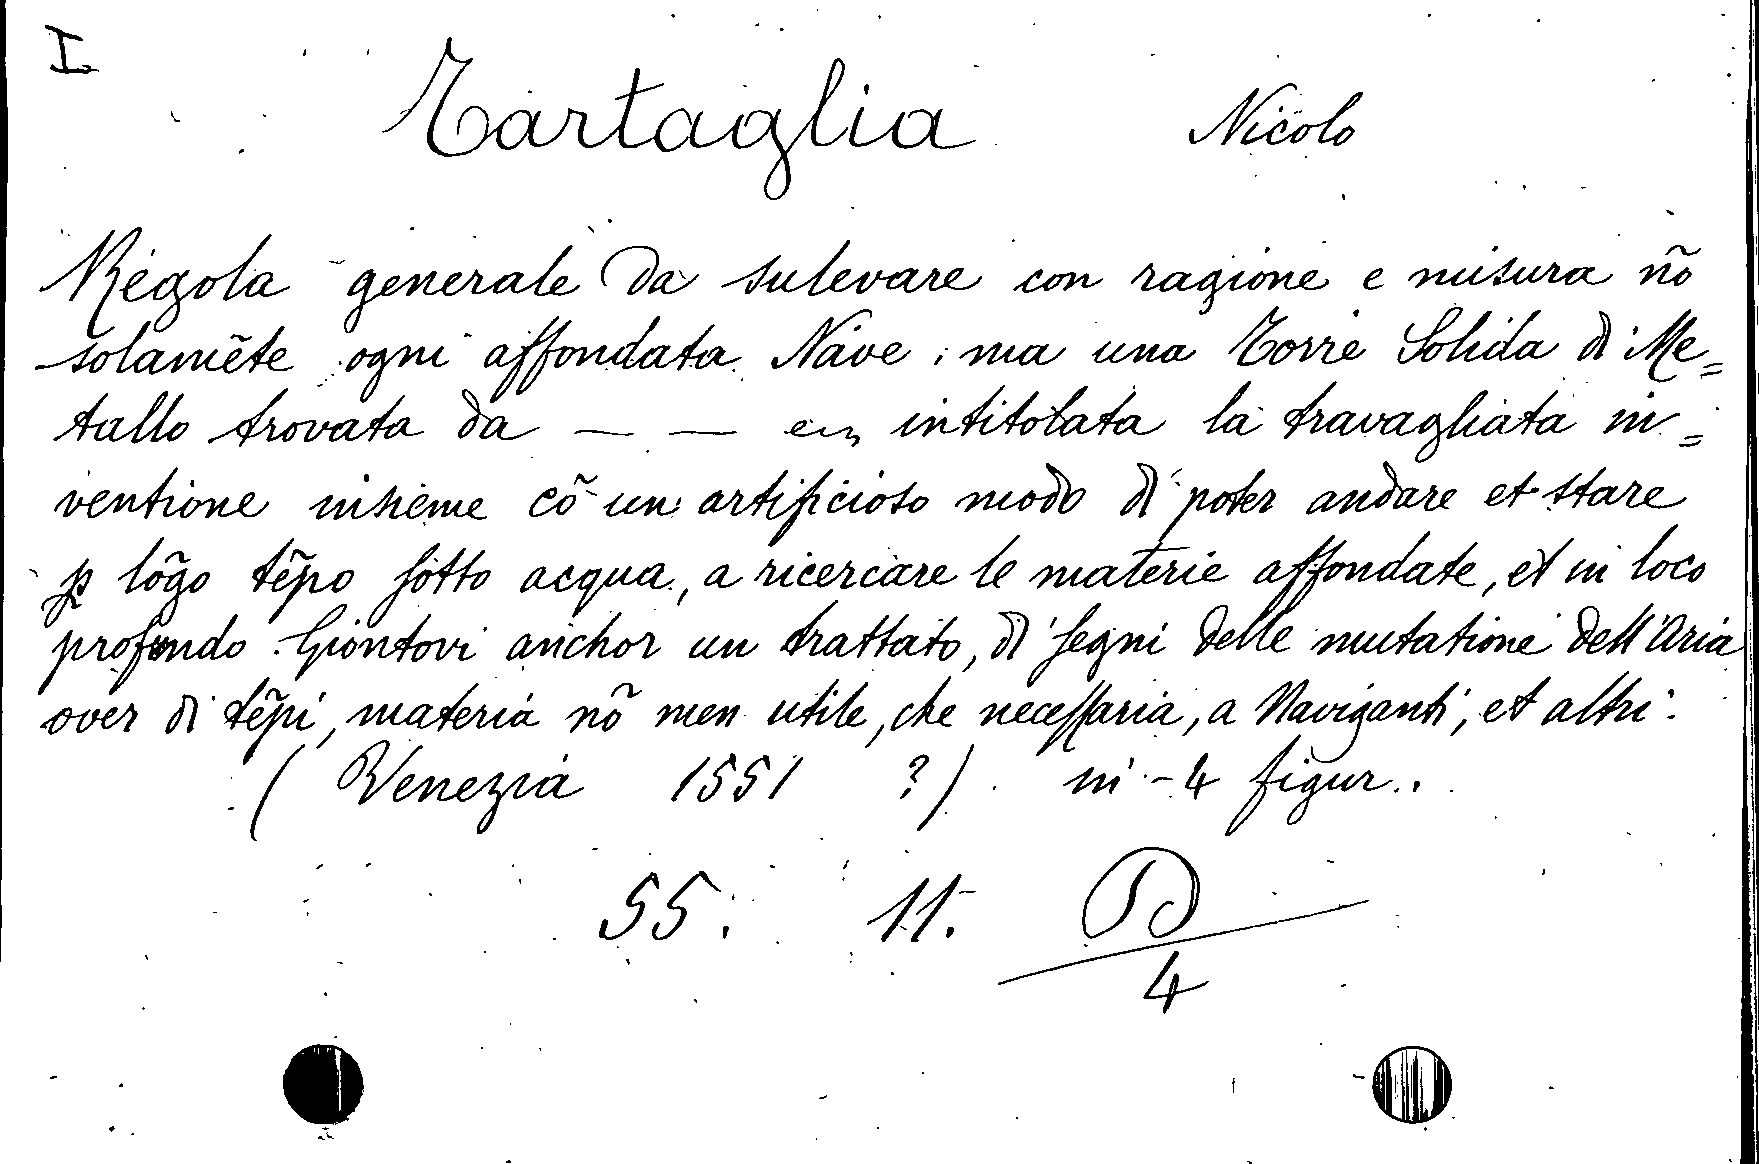 I
Tartaglia Nicolo
Regola generale da sulevare con ragione e misura nõ
solamẽte ogni affondata Nave, ma una Torre Solida di Me=
tallo trovata da — — intitolata la travagliata in=
ventione insieme cõ un artificioso modo di poter andare et stare
ꝑ lõgo tẽpo sotto acqua, a ricercare le materie affondate, et in loco
profondo. Giontovi anchor un trattato, di segni delle mutatione dell'Aria
over di tẽpi, materia nõ men utile, che necessaria, a Naviganti, et altri.
(Venezia 1551 ?) in-4 figur.
55. 11. D
4